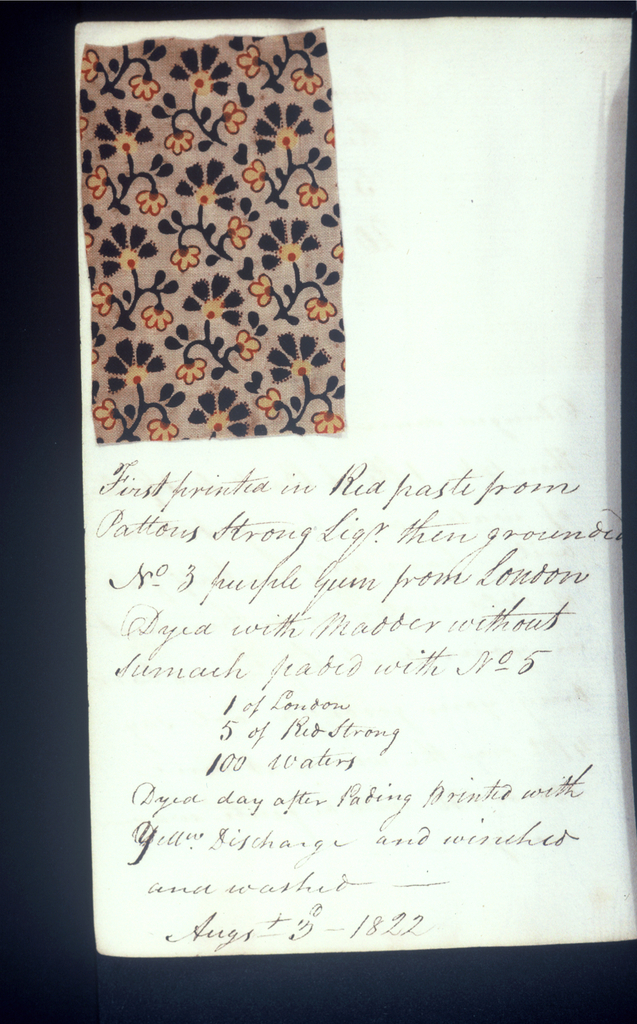 First printed in Red paste from
Pattons Strong Liqr. then grounded
No 3 purple Gum from London
Dyed with Madder without
Sumach paded with No 5
1 of London
5 of Red Strong
100 Waters
Dyed day after Pading Printed with
Yellw Discharge and winched
and washed —
Augst 3d — 1822